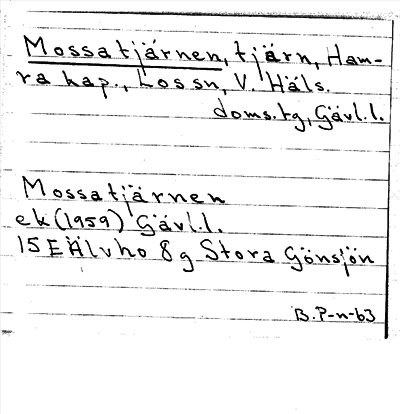 Mossatjärnen, tjärn, Ham-
ra kap., Lossn, V. Häls.
doms.tg, Gävl.l.
Mossatjärnen
ek(1959) Gävl.l.
15EÄlvho 8g Stora Gönsjön
B.P-n-63